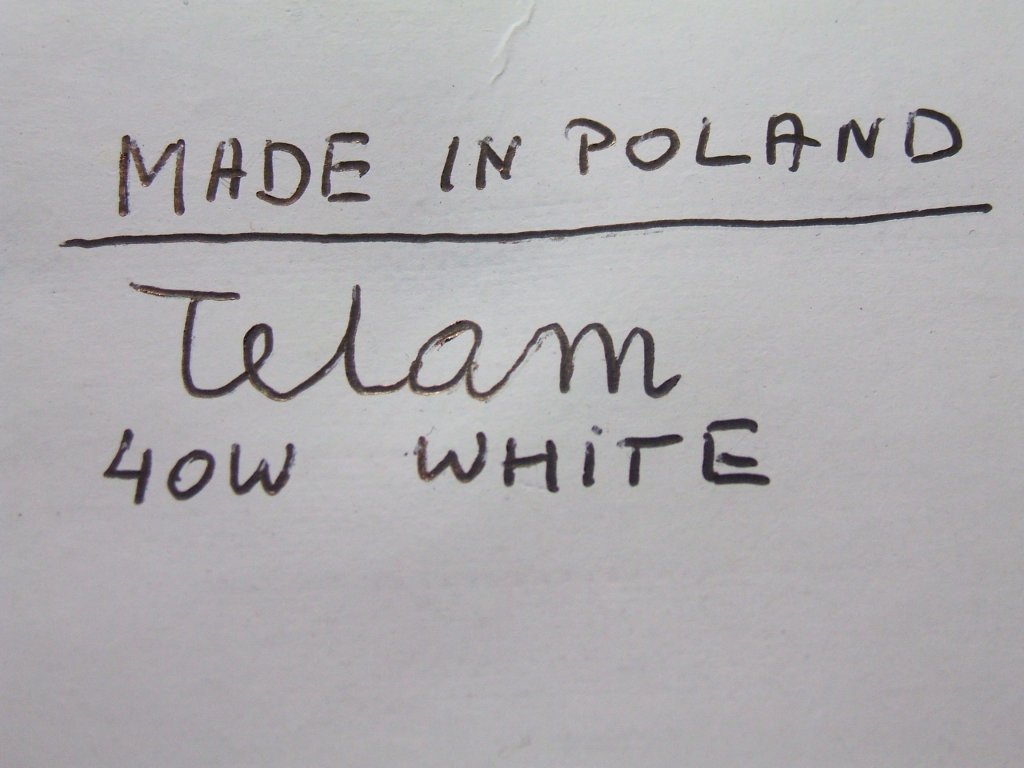 MADE IN POLAND
Telam
40W WHiTE